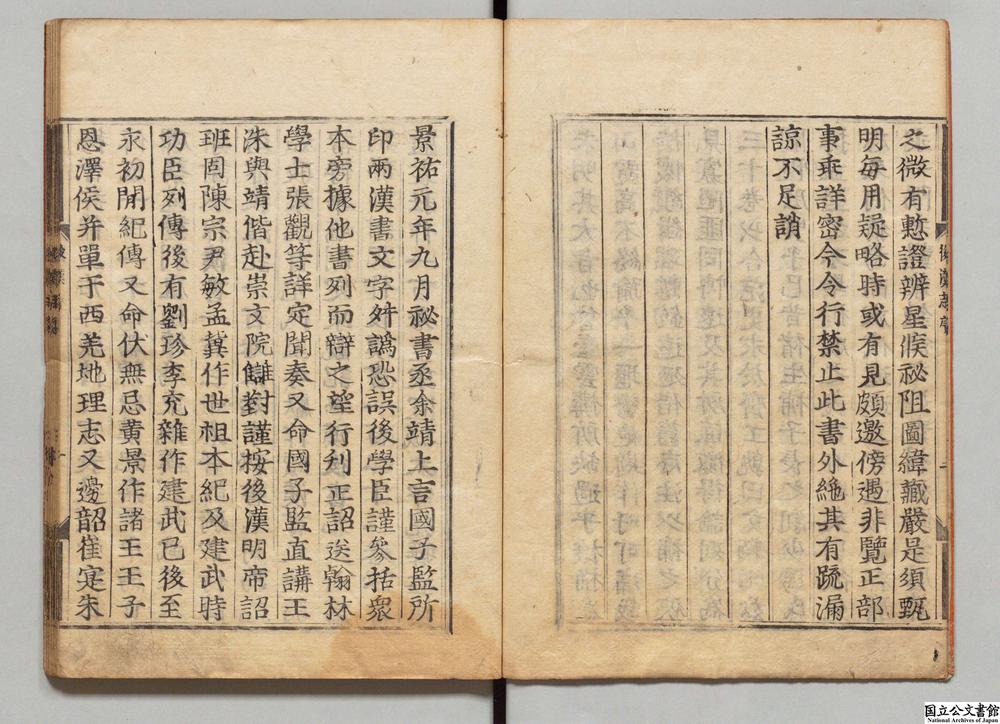 之微有慙證辨星候祕阻圖緯藏嚴是須甄
明每用疑略時或有見頗邀傍遇非覽正部
事乖詳密今令行禁止此書外絶其有䟽漏
諒不足誚
景祐元年九月祕書丞余靖上言國子監所
印兩漢書文字舛譌恐誤後學臣謹參括衆
本旁據他書列而辯之望行刋正詔送翰林
學士張觀等詳定聞奏又命國子監直講王
洙與靖偕赴崇文院讎對謹按後漢明帝詔
班固陳宗尹敏孟冀作世祖本紀及建武時
功臣列傳後有劉珍李充雜作建武已後至
永初閒紀傳又命伏無忌黃景作諸王王子
恩澤侯并單于西羌地理志又邊韶崔寔朱
国立公文書館
National Archives of Japan